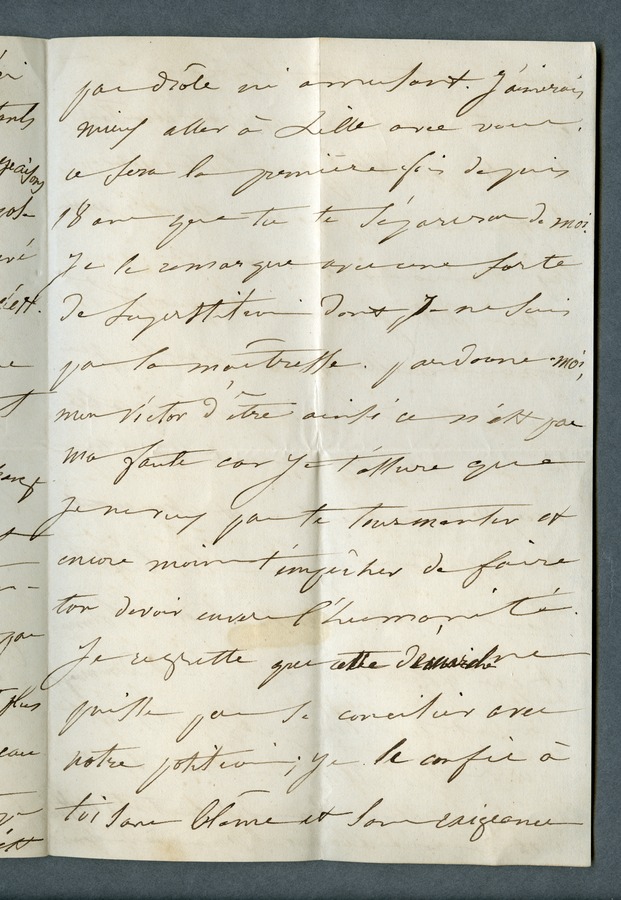 pas drôle ni amusant. J'aimerais
mieux aller à Lille avec vous.
ce sera la première fois depuis
18 ans que tu te sépareras de moi.
Je le remarque avec une sorte
de superstition dont je ne suis
pas la maîtresse. pardonne-moi,
mon Victor d'être ainsi ce n'est pas
ma faute car je t'assure que
je ne veux pas te tourmenter et
encore moins t'empêcher de faire
ton devoir envers l'humanité.
Je regrette que cette démarche ne
puisse pas se concilier avec
notre position; je le confie à
toi sans blâme et sans exigeance